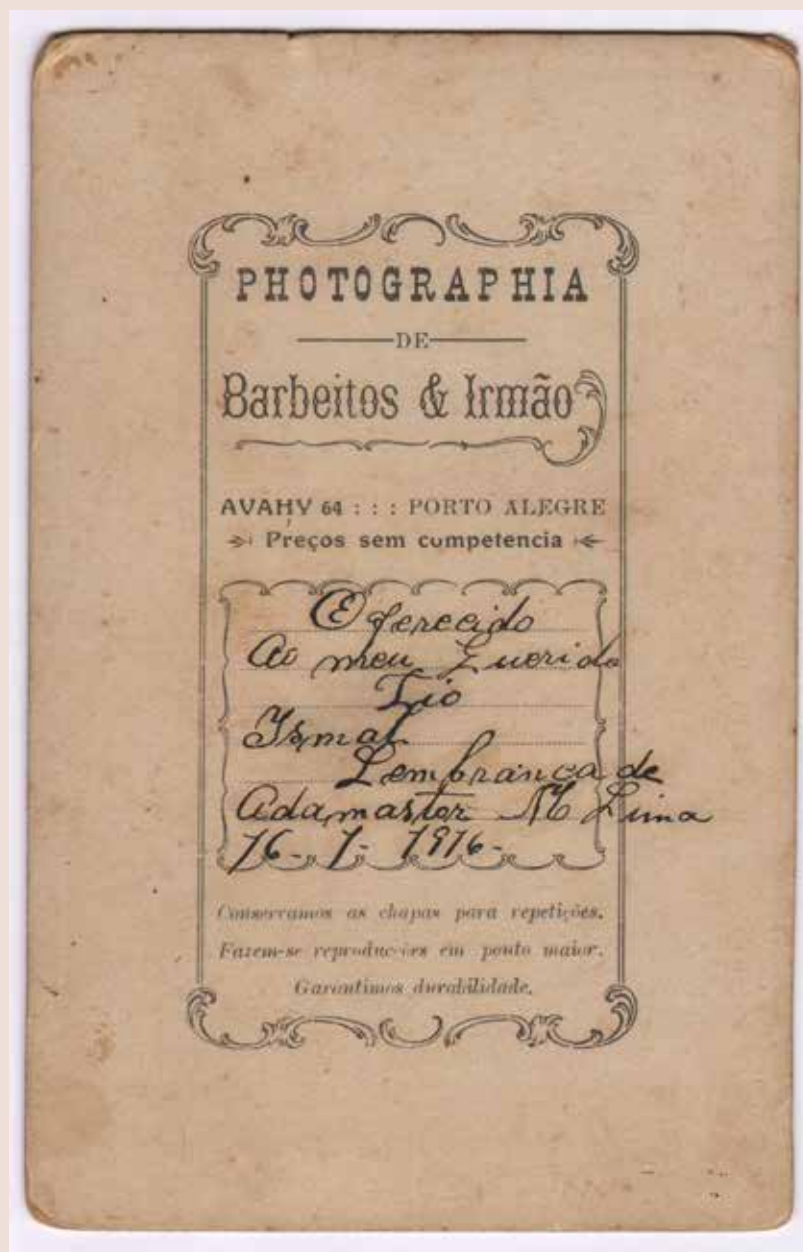 PHOTOGRAPHIA
DE
Barbeitos & Irmão
AVAHY 64 : : : PORTO ALEGRE
Preços sem competencia
Offerecido
Ao meu Querido
Tio
Ismal
Lembrança de
Adamastor M Lima
16-7-1916-
Conservamos as chapas para repetições.
Fazem-se reproducções em ponto maior.
Garantimos durabilidade.